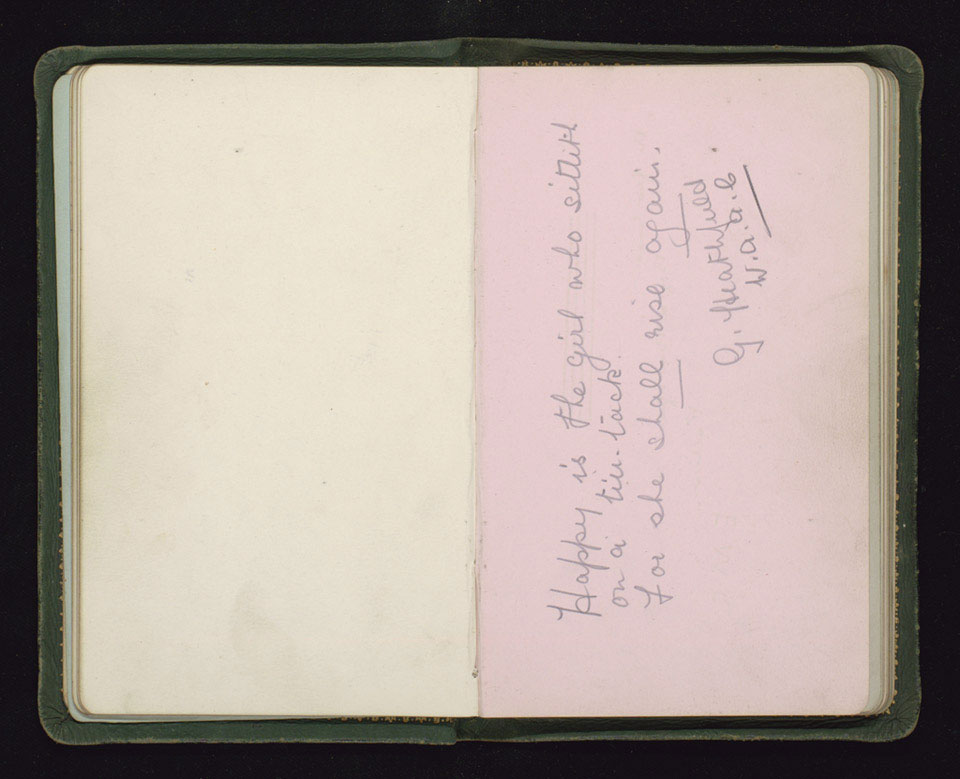 Happy is the girl who sitteth
on a tin-tack.
For she shall rise again.
G. Heathfield
W.A.A.C.